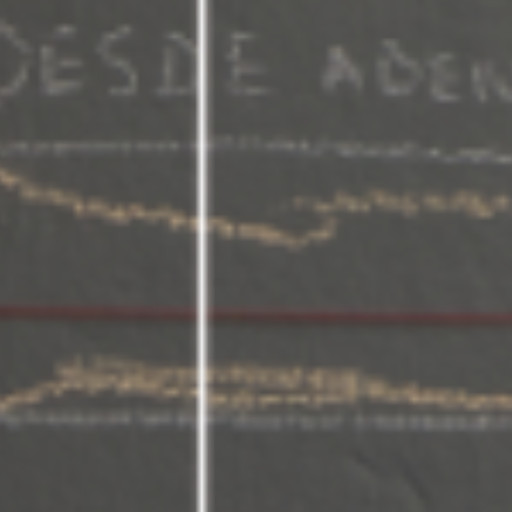 DESDE ADEN